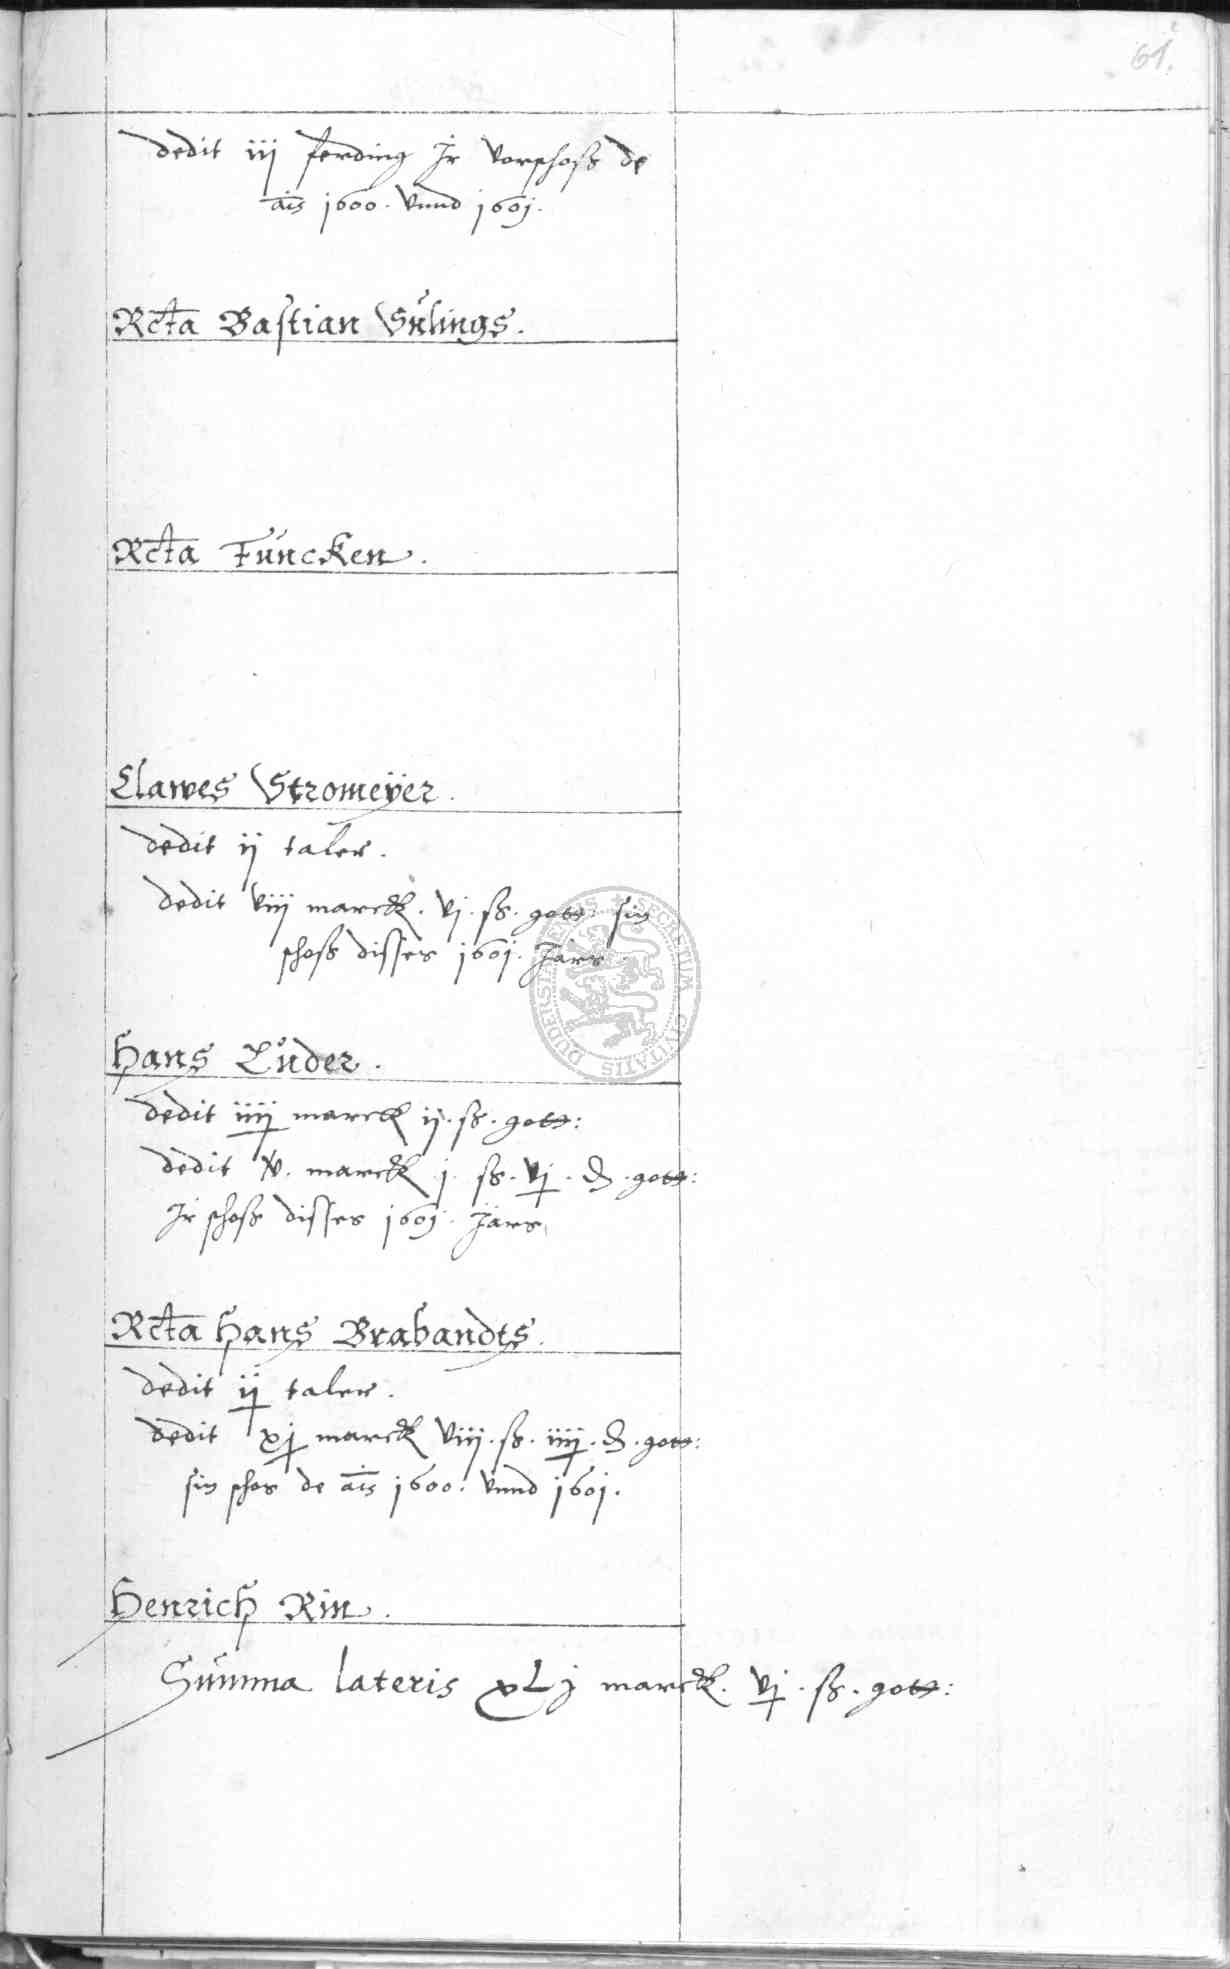 61.
dedit iij ferding Ir vorschoss de
aīs 1600. vnnd 1601.
Rcta Bastian Sŭlings.
Rcta Fŭncken.
Clawes Stromeÿer.
dedit ij taler.
dedit viij marck. vj. ss. gott: sin
schoss disses 1601. Jars.
Hans Lŭder.
dedit iiij marck ij. ss. gott:
dedit v. marck j. ss. vj. ₰. gott:
Ir schoss disses 1601. Jars
Rcta Hans Brabandts.
dedit ij taler.
dedit xj marck viij. ss. iiij. ₰. gott:
sin schos de aīs 1600. vnnd 1601.
Henrich Rin.
Sŭmma lateris xLj marck. vj. ss. gott:
SECRETUM CIVITATIS DUDERSTADENSIS